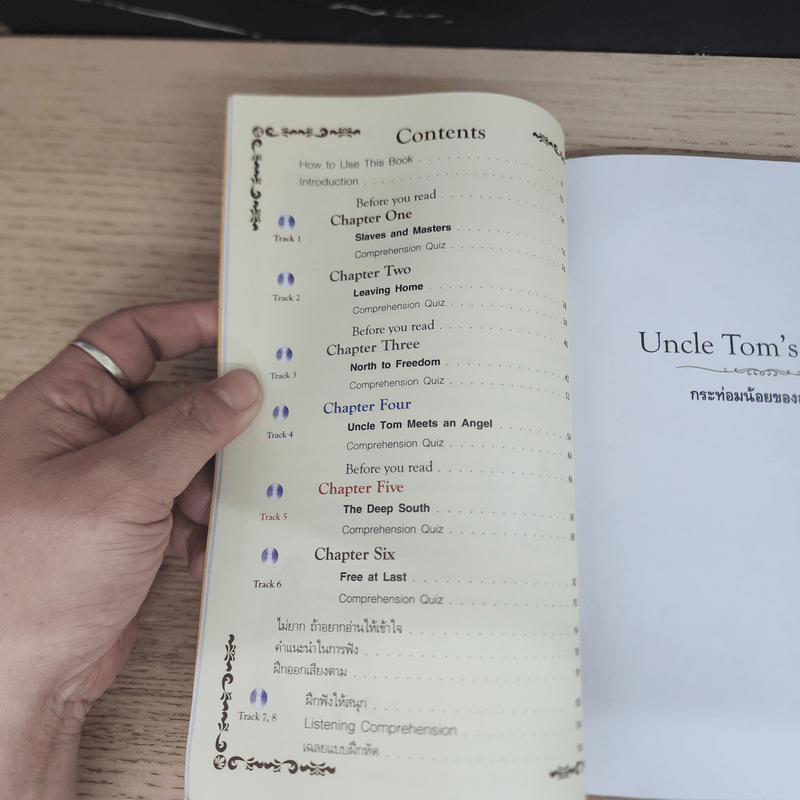 Contents
How to Use This Book
Introduction
Before you read
Chapter One
Track 1
Slaves and Masters
Comprehension Quiz
Chapter Two
Track 2
Leaving Home
Comprehension Quiz
Before you read
Chapter Three
Track 3
North to Freedom
Comprehension Quiz
Chapter Four
Track 4
Uncle Tom Meets an Angel
Comprehension Quiz
Before you read
Chapter Five
Track 5
The Deep South
Comprehension Quiz
Chapter Six
Track 6
Free at Last
Comprehension Quiz
ไม่ยาก ถ้าอยากอ่านให้เข้าใจ
คำแนะนำในการฟัง
ฝึกออกเสียงตาม
ฝึกฟังให้สนุก
Track 7, 8
Listening Comprehension
เฉลยแบบฝึกหัด
Uncle Tom's
กระท่อมน้อยของ